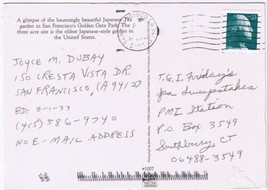 A glimpse of the hauntingly beautiful Japanese Tea
garden in San Francisco's Golden Gate Park. The
three acre site is the oldest Japanese-style garden in
the United States.
JOYCE M. DUBAY
150 CRESTA VISTA DR
SAN FRANCISCO, CA 94127
BD: 3-1-33
(415) 586-9740
NO E-MAIL ADDRESS
T.G.I. Friday's
Sweepstakes
PMI Station
P.O. Box 3549
Southbury, CT
06488-3549